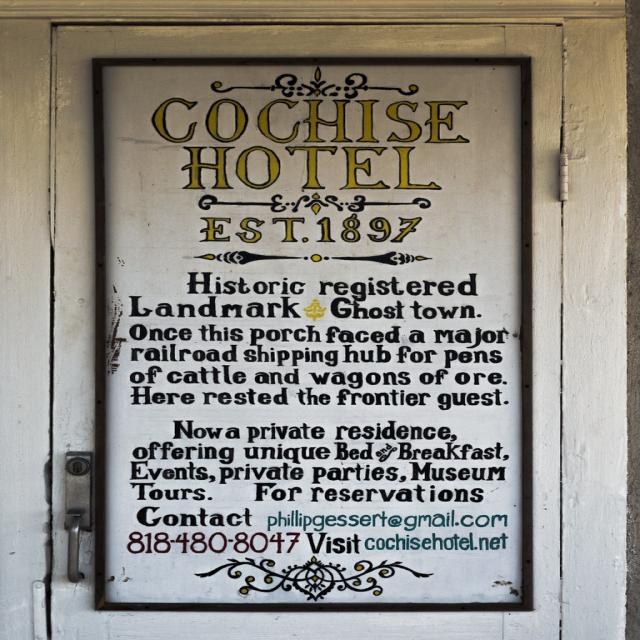 COCHISE
HOTEL
EST. 1897
Historic registered
Landmark Ghost town.
Once this porch faced a major
railroad shipping hub for pens
of cattle and wagons of ore.
Here rested the frontier guest.
Now a private residence,
offering unique Bed and Breakfast,
Events, private parties, Museum
Tours. For reservations
Contact phillipgessert@gmail.com
818-480-8047 Visit cochisehotel.net